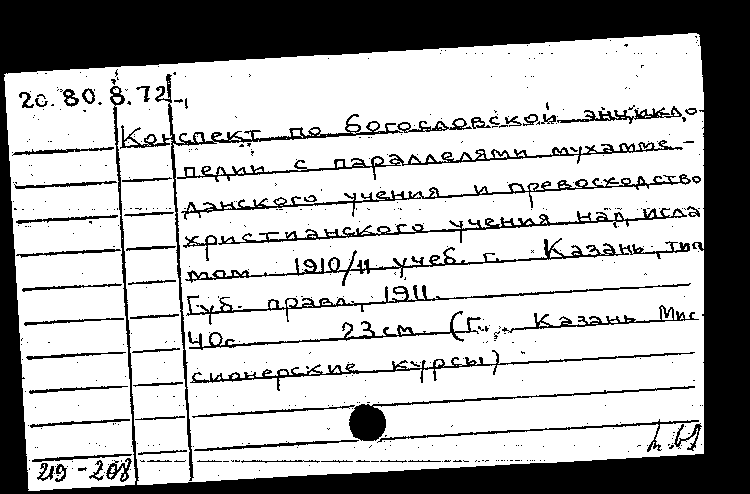 20.80.8.72
Конспект по богословской энцикло-
педии с параллелями мухамме-
данского учения и превосходство
христианского учения над исла
мом. 1910/11 учеб. г. Казань, тип
Губ. правл., 1911.
40с 23см. (Г. Казань Мис-
сионерские курсы)
219-208